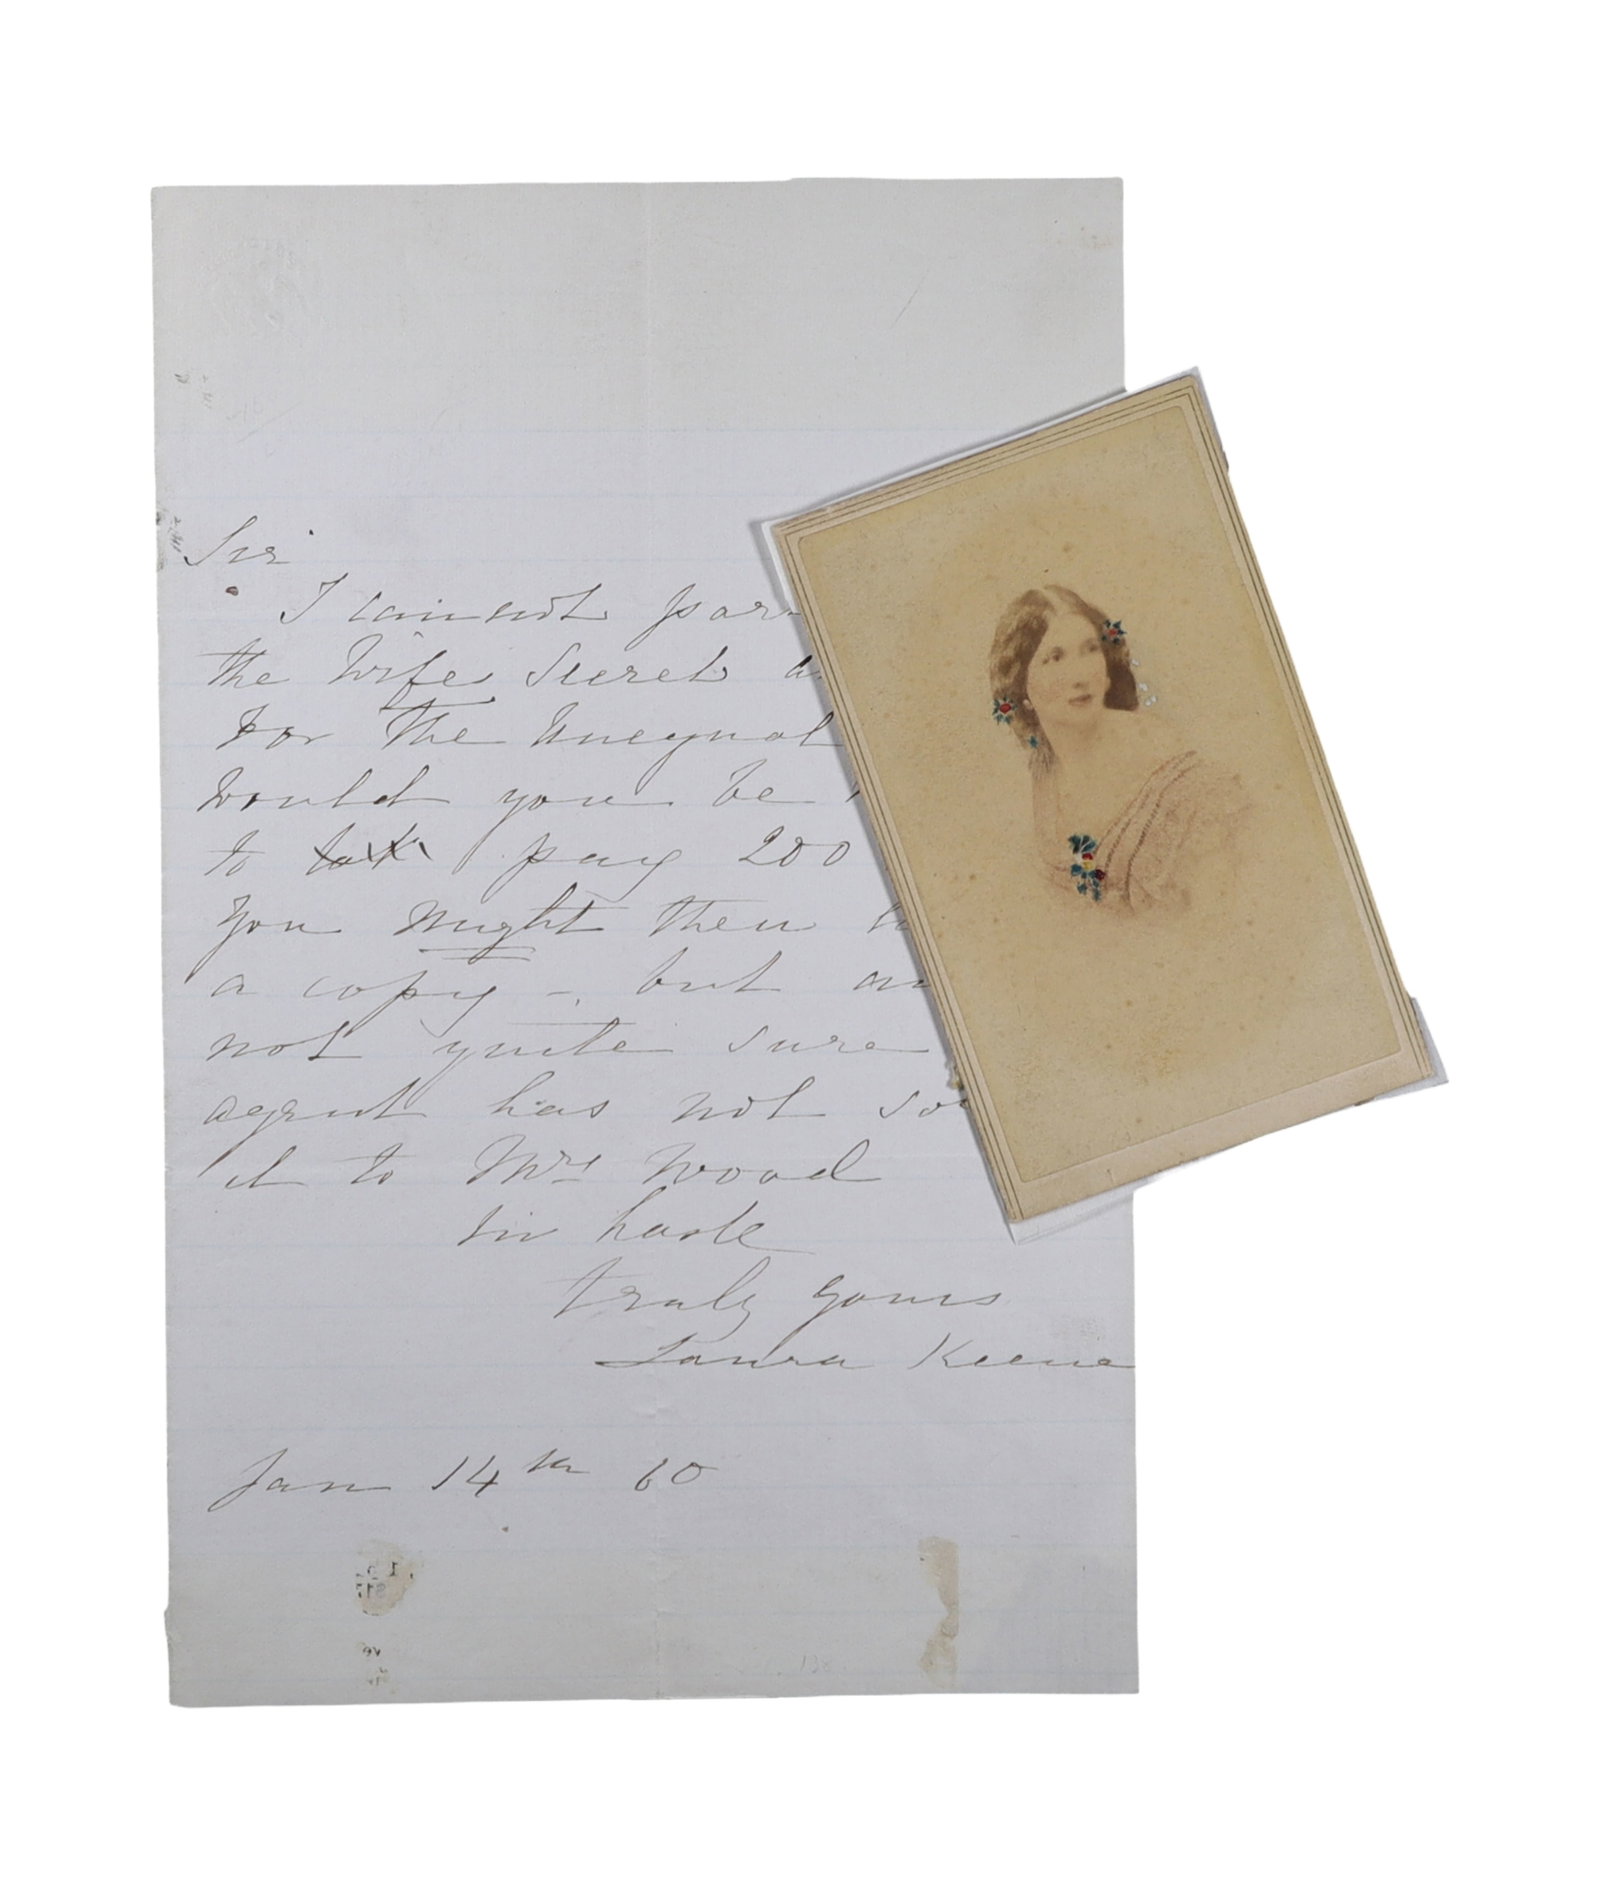 Sir
I cannot par
the Wife Secret a
for The Unequal
would you be
to pay 200
You might then
a copy -, but
not quite sure
agent has not so
it to Mrs Wood
in haste
truly yours
Laura Keene
Jan 14th 60